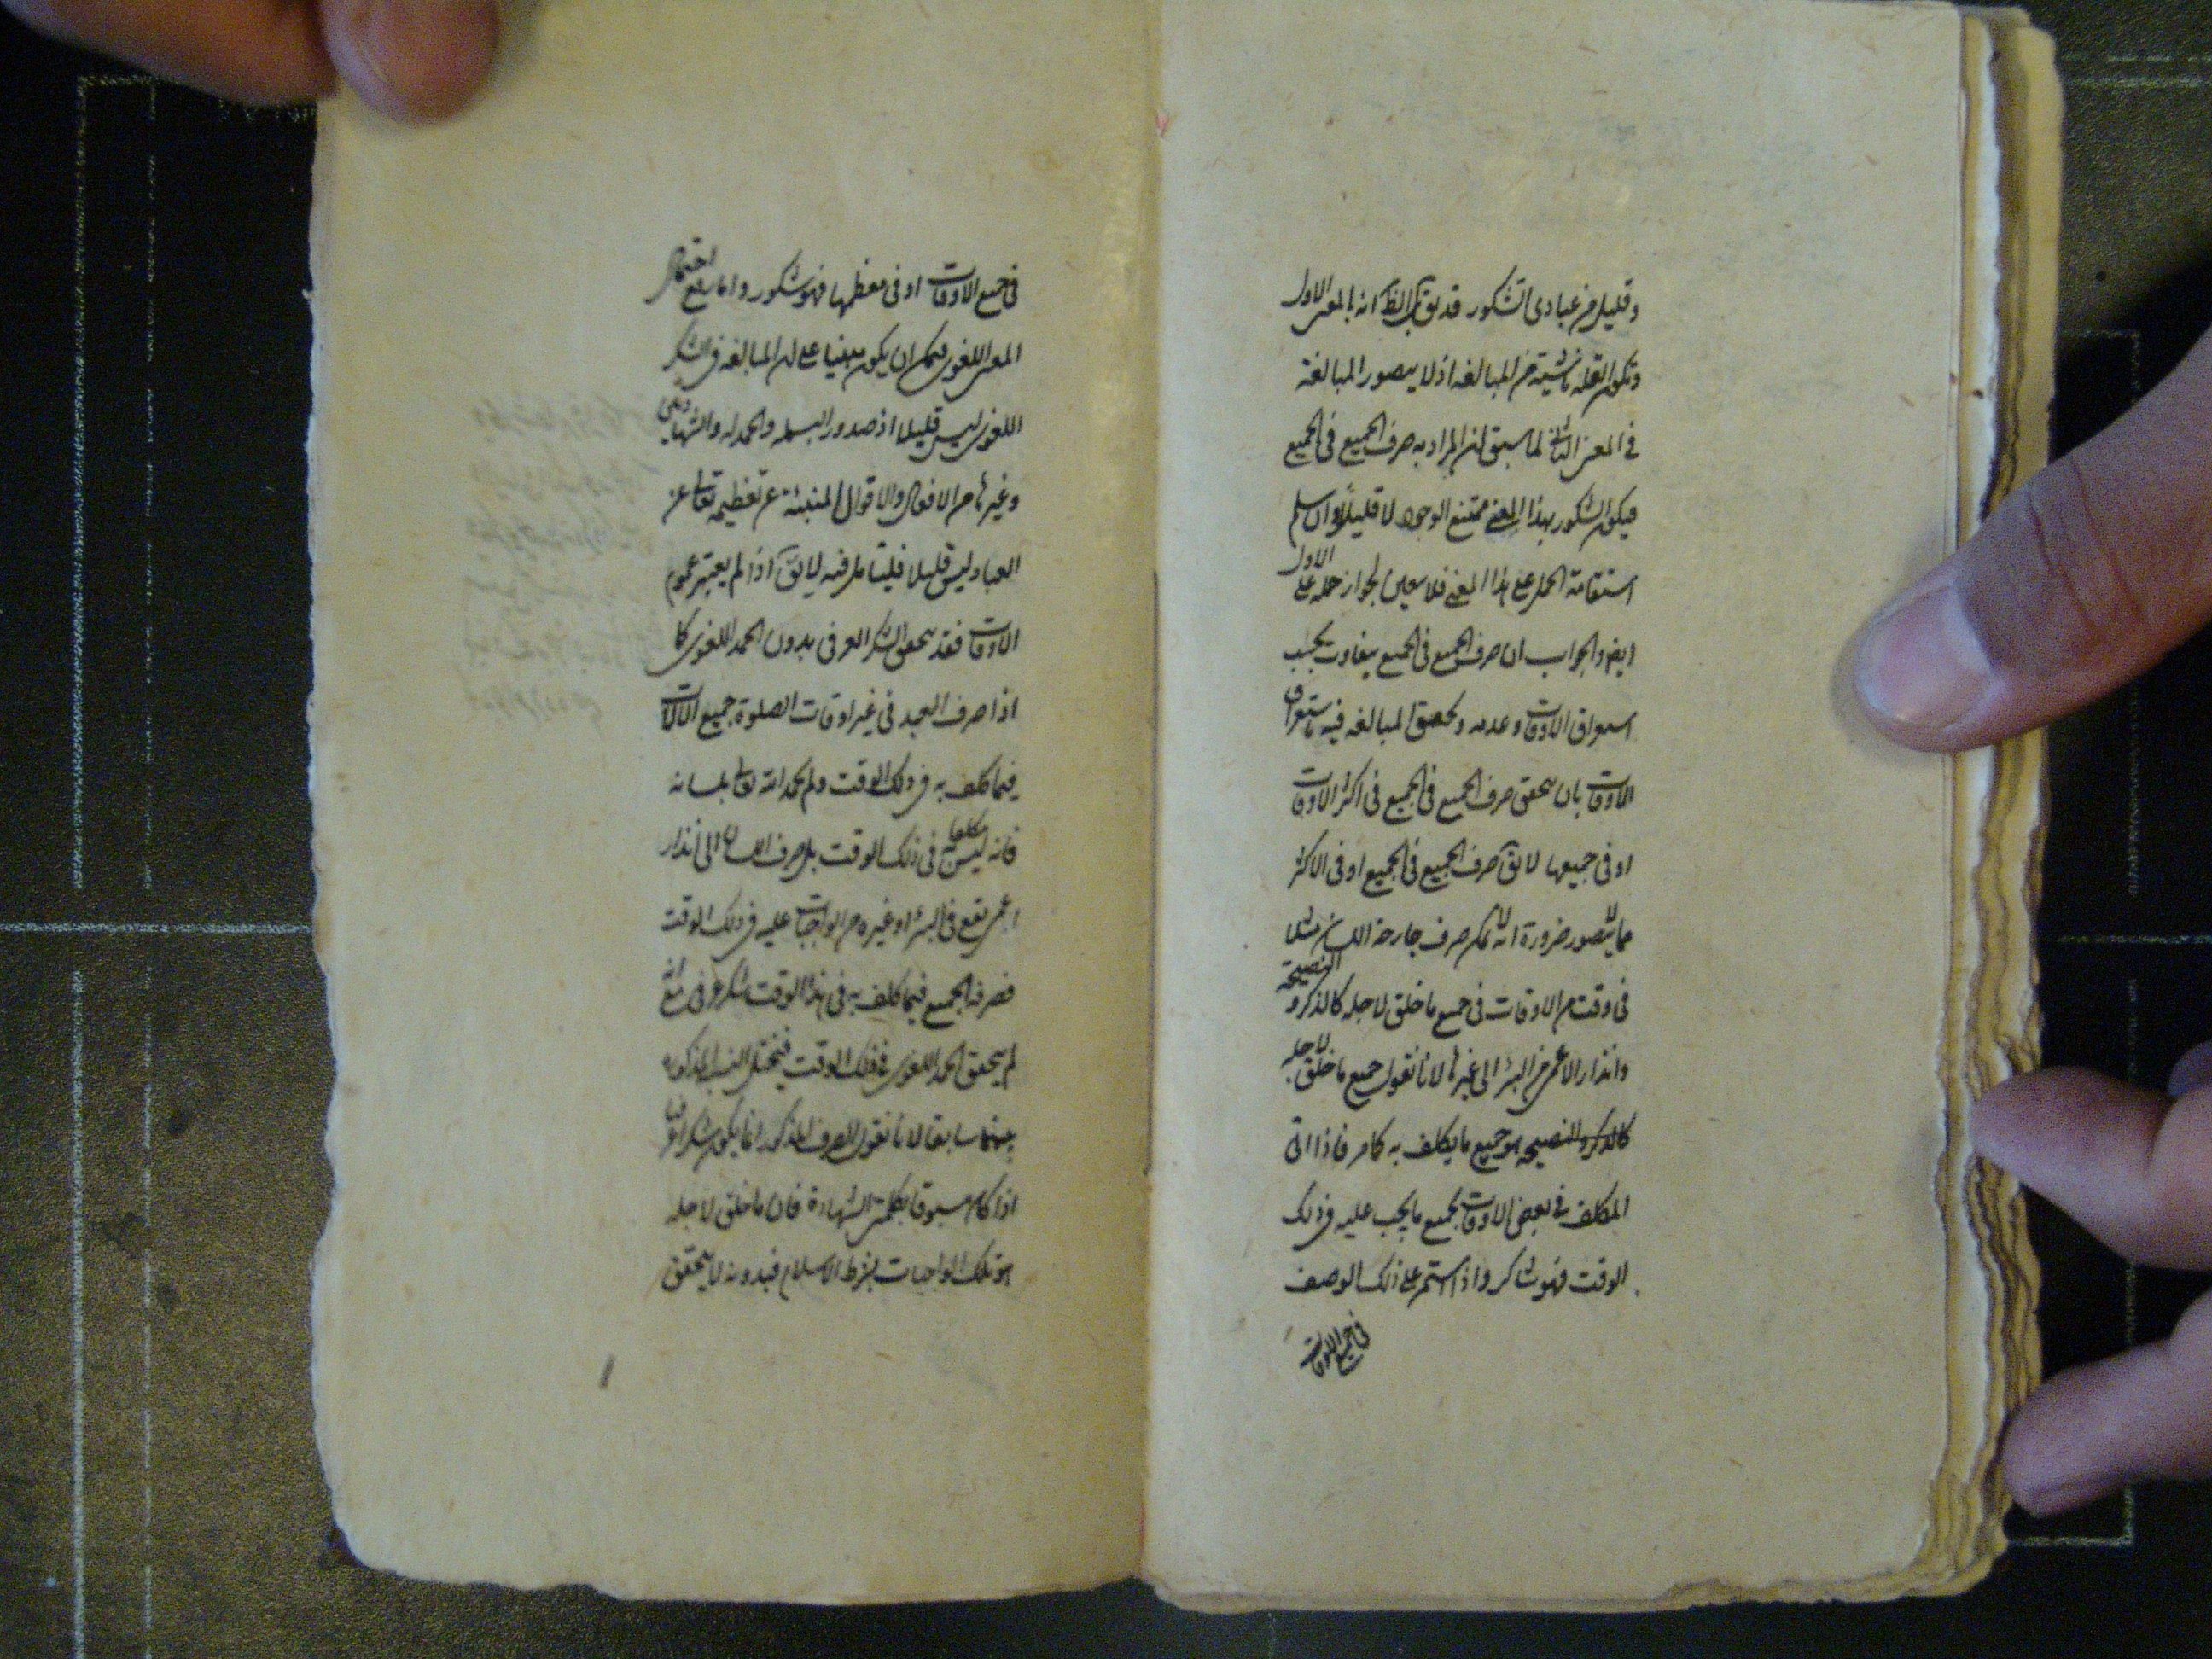 وقليل من عبادى الشكور قد يقال الظ انه بالمعنى الاول
وتكون القلة ناشية من المبالغه اذ لا يتصور المبالغة
فى المعنى الثانى لما سبق ان المراد به صرف الجميع فى الجميع
فيكون الشكور بهذا المعنى ممتنع الوجود لا قليلا ولو سلم
استقامة الحمل على هذا المعنى فلا يتعين لجواز حمله على الاول
ايض والجواب ان صرف الجميع فى الجميع يتفاوت بحسب
استغراق الاوقات وعدمه وتحقق المبالغه فيه باستغراق
الاوقات بان يتحقق صرف الجميع فى الجميع فى اكثر الاوقات
او فى جميعها لا يق صرف الجميع فى الجميع او فى الاكثر
مما لا يتصور ضرورة انه لا يمكن صرف جارحة اللسان مثلا
فى وقت من الاوقات فى جميع ما خلق لاجله كالذكر و النصيحة
وانذار الاعمى من البئر الى غيرها لانا نقول جميع ما خلق لاجله
كالذكر والنصيحه هو جميع ما يكلف به كامر فاذا اتى
المكلف فى بعض الاوقات بجميع ما يجب عليه فى ذلك
الوقت فهو شاكر واذا استمر على ذلك الوصف
فى جميع الاوقات
فى جميع الاوقات او فى معظمها فهو شكور واما احتمال
المعنى اللغوى فيمكن ان يكون مبنيا على ان المبالغه فى الشكر
اللغوى ليس قليلا اذ صدور البسمله والحمدله والشهادتين
وغيرها من الافعال والاقوال المنبئة عن تعظيمه تعالى عن
العباد ليس قليلا فليتامل فيه لا يق اذا لم يعتبر عموم
الاوقات فقد يتحقق الشكر العرفى بدون الحمد اللغوى كما
اذا صرف العبد فى غير اوقات الصلوة جميع الالات
فيما كلف به فى ذلك الوقت ولم يحمد الله تعالى بلسانه
فانه ليس مكلفا به فى ذلك الوقت بل صرف اللسان الى انذار
اعمى يقع فى البئر او غيره من الواجبات عليه فى ذلك الوقت
فصرفه الجميع فيما كلف به فى هذا الوقت شكر عرفى مع انه
لم يتحقق الحمد اللغوى فى ذلك الوقت فيختل النسب المذكوره
بينهما سابقا لانا نقول الصرف المذكور انما يكون شكرا عرفيا
اذا كان مسبوقا بكلمتى الشهادة فان ما خلق لاجله
هو تلك الواجبات بشرط الاسلام فبدونه لا يتحقق